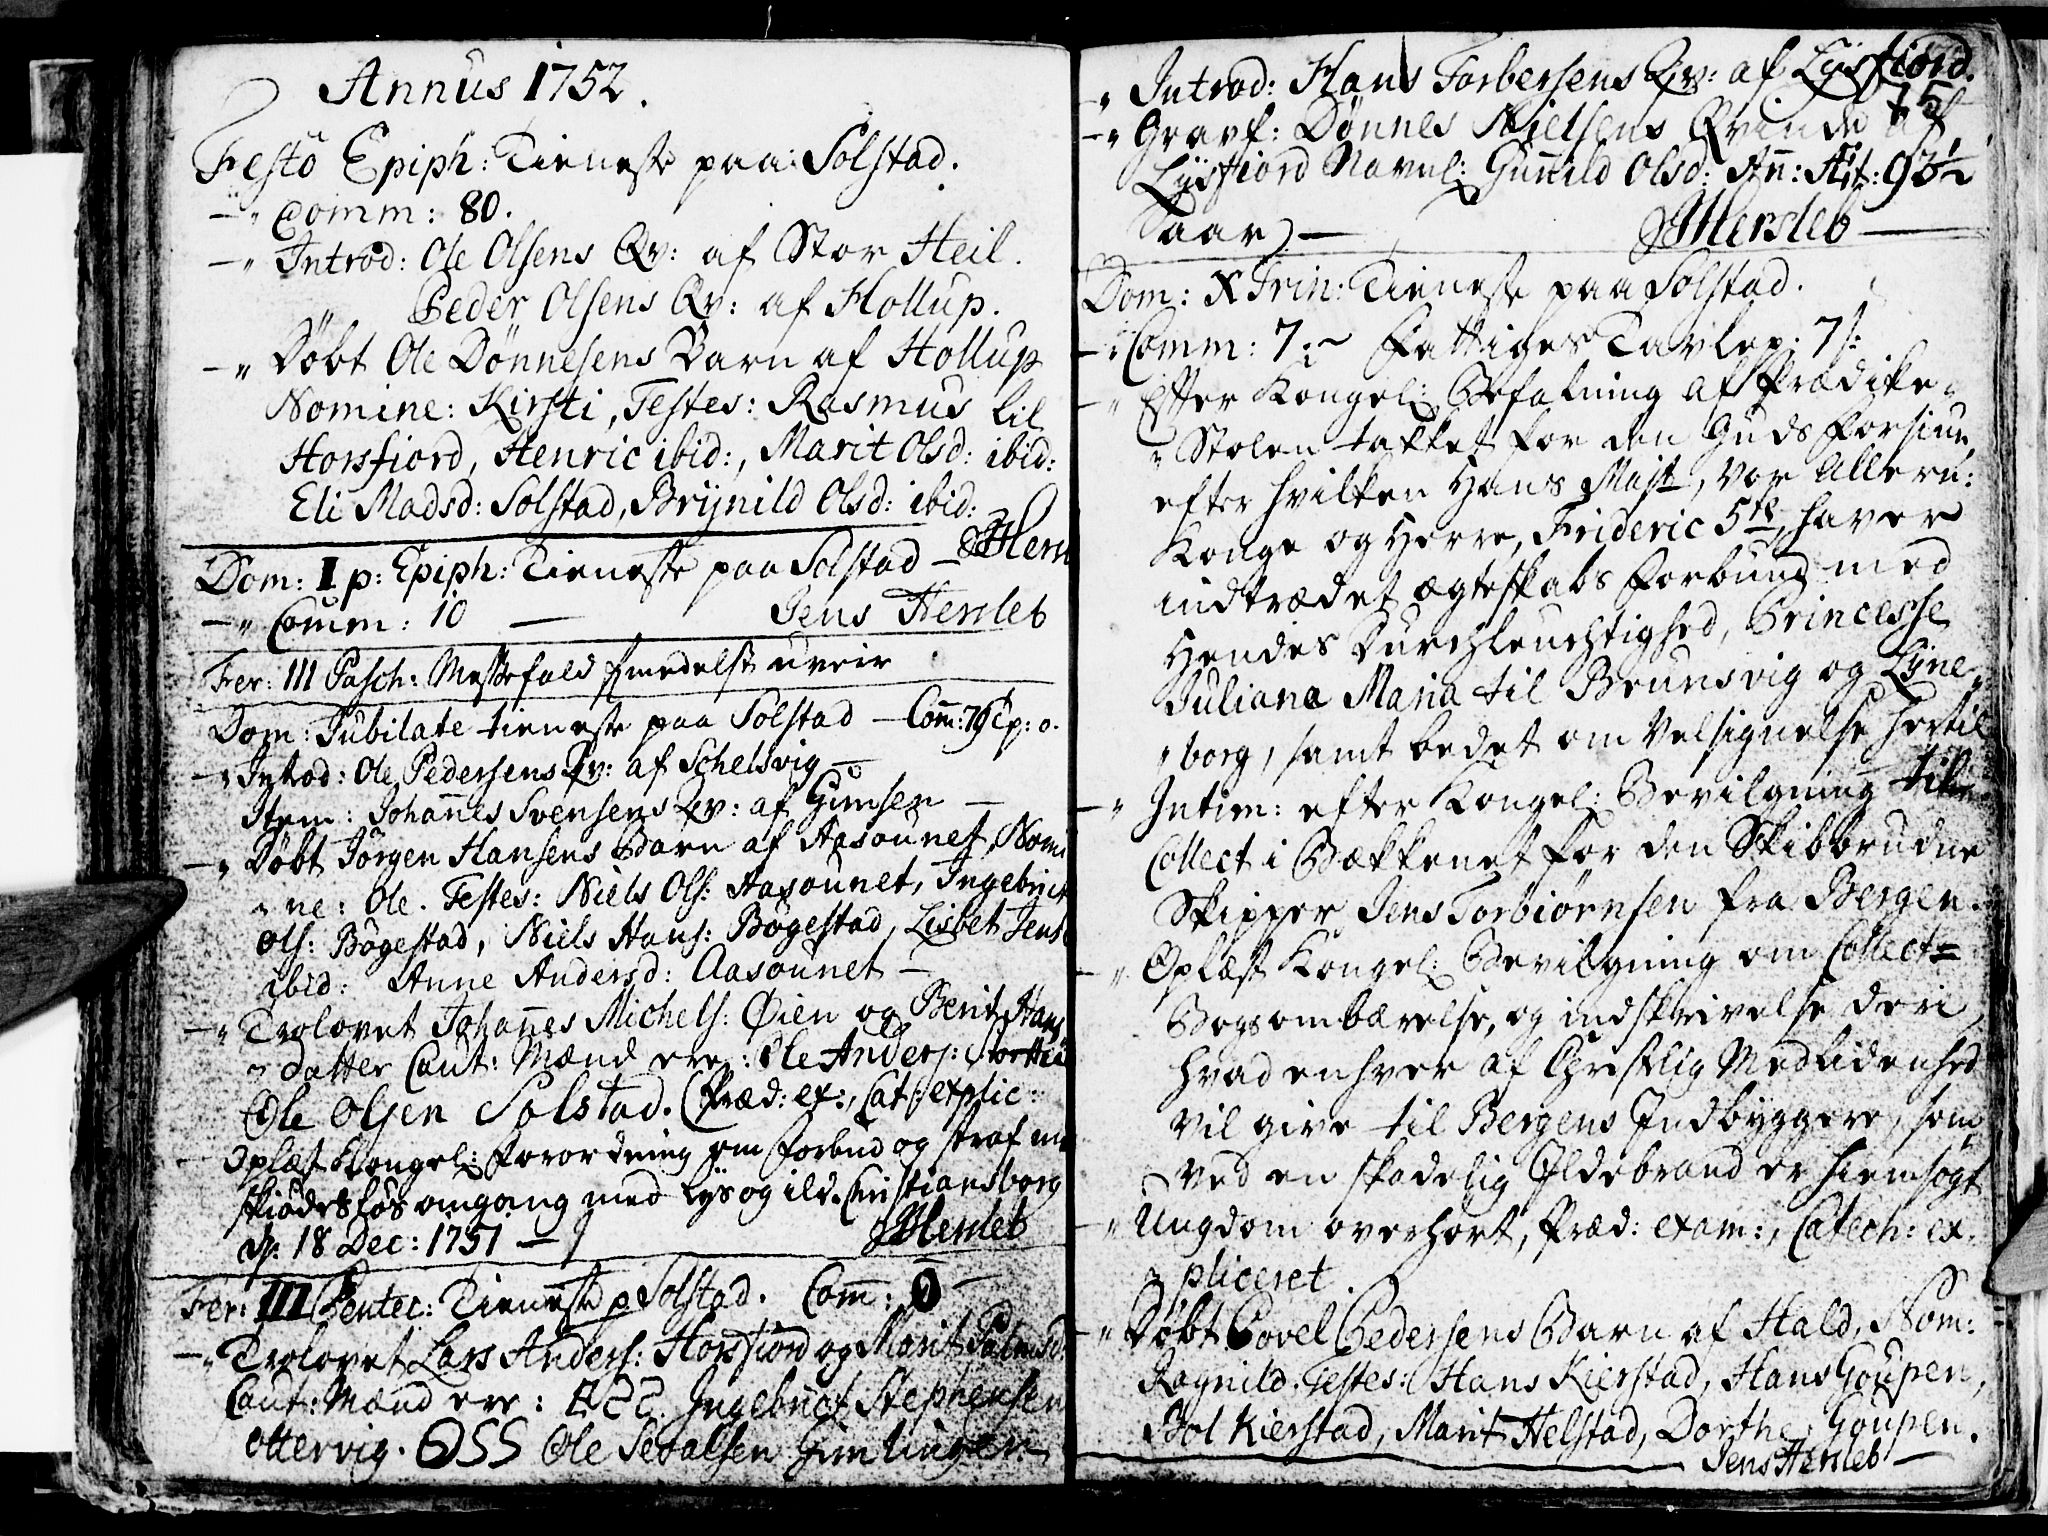 Annus 1752.
Festo Epiph: Tieneste paa Solstad.
—" Comm: 80.
—" Introd: Ole Olsens Qv: af Stor Heil.
Peder Olsens Qv: af Hollup.
—" Döbt Ole Dönnesens Barn af Hollup
Nomine: Kirsti, Testes: Rasmus lil
Horsfiord, Henric ibid:, Marit Olsd: ibid:
Eli Madsd: Solstad, Brÿnild Olsd: ibid:
JHersl
Dom: I p: Epiph: Tieneste paa Solstad —
—" Comm: 10 — Jens Hersleb
Fer: III Pasch: Messefald formedelst uveir
Dom: Jubilate tieneste paa Solstad — Com̄: 79
—" Introd: Ole Pedersens Qv: af Schelsvig —
Item: Johan̄es Svensens Qv: af Gimsen —
—" Döbt Jörgen Hansens Barn af Aasounet, Nomi
"ne: Ole. Testes: Niels Ols: Aasounet, Ingebrict
Ols: Bögestad, Niels Hans: Bögestad, Lisbet Jens
ibid: Anne Andersd: Aasounet —
—" Trolovet Johan̄es Michels: Øien og Berit Hans
"datter Caut: Mænd ere: Ole Anders:
Ole Olsen Solstad. Præd: ex:, Cat: explic:
— Oplæst Kongel: Forordning om Forbud og straf
skiödeslös omgang med lys og ild. Christiansborg
d: 18 Dec: 1751 — JHersleb
Fer: III Pentec: Tieneste p Solstad. Com̄: 0 —
—" Trolovet Lars Anders: Horsfiord og Marit
Caut: Mænd ere: Ingebrict Stephensen
Ottervig. Ole Sevalsen
"Introd: Hans Torbersens Qv: af Lysfiord.
75
—" Gravf: Dönnes Nielsens Qvinde af
Lysfiord Navnl: Gun̄ild Olsd: An̄: Æt: 93½
aar) — JHersleb —
Dom: X Trin: Tieneste paa Solstad.
—" Comm: 7. — Fattiges Tavlep: 7 s:
—" Efter Kongel: Befalning af Prædike-
"Stolen takket for den Guds Forsiun,
efter hvilken Hans Majst, vor Alleru:
Konge og Herre, Frideric 5te, haver
indtrædet ægteskabs Forbund med
Hendes Durchleuchtighed, Princesse
Juliana Maria til Brunsvig og Lÿne-
"borg, samt bedet om Velsignelse hertil
—" Intim: efter Kongel: Bevilgning til
Collect i Bækkenet for den Skibbrudne
Skipper Jens Torbiörnsen fra Bergen.
—" Oplæst Kongel: Bevilgning om Collect-
Bogs ombærelse, og indskrivelse deri
hvad enhver af Christlig Medlidenhed
vil give til Bergens Indbyggere, som
ved en skadelig Ildebrand er hiemsögt
—" Ungdom overhört, Præd: exam:, Catech: ex-
"pliceret.
—" Döbt Povel Pedersens Barn af Hald, Nom:
Ragnild. Testes: Hans Kierstad, Hans Goupen,
Bol Kierstad, Marit Helstad, Dorthe Goupen.
Jens Hersleb —